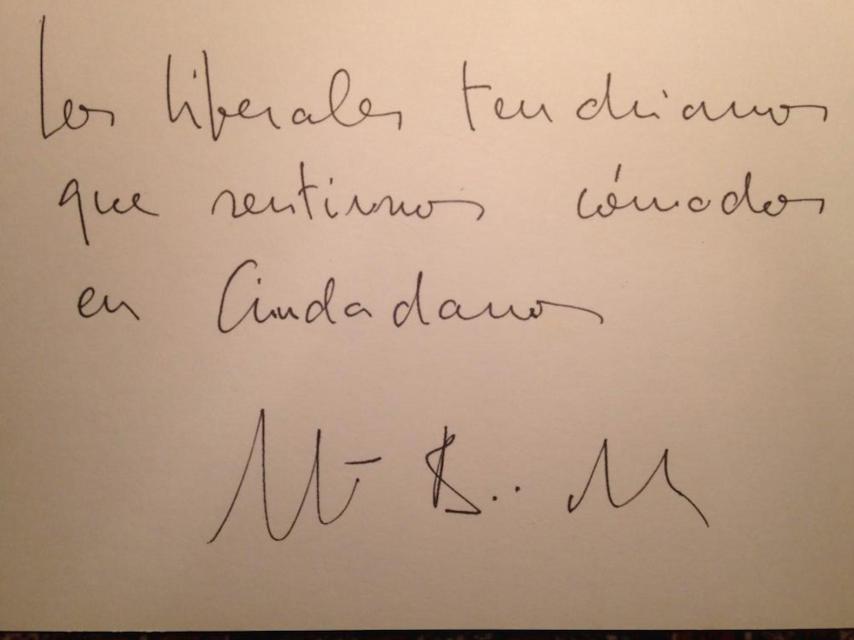 Los liberales tendrianos
que sentirnos cómodos
en Ciudadanos